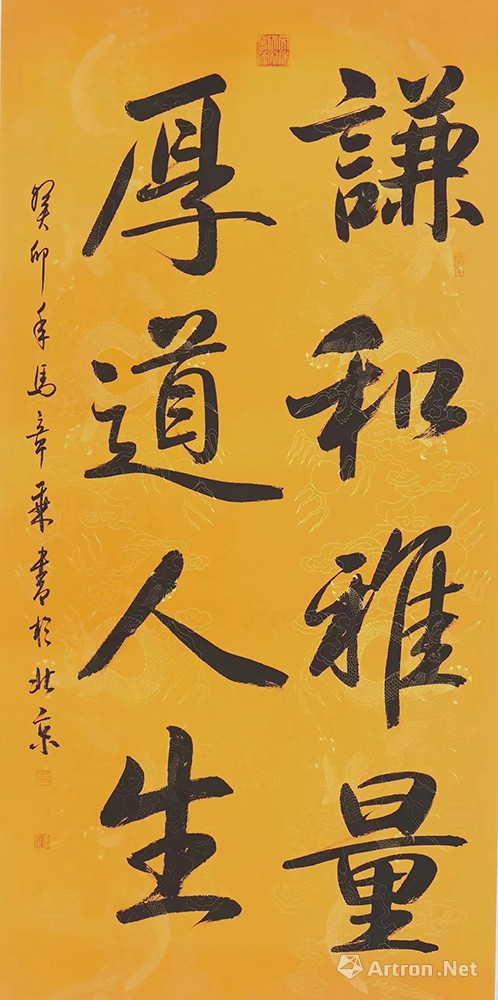 謙和雅量
厚道人生
癸卯年馬章乘書於北京
Artron.Net